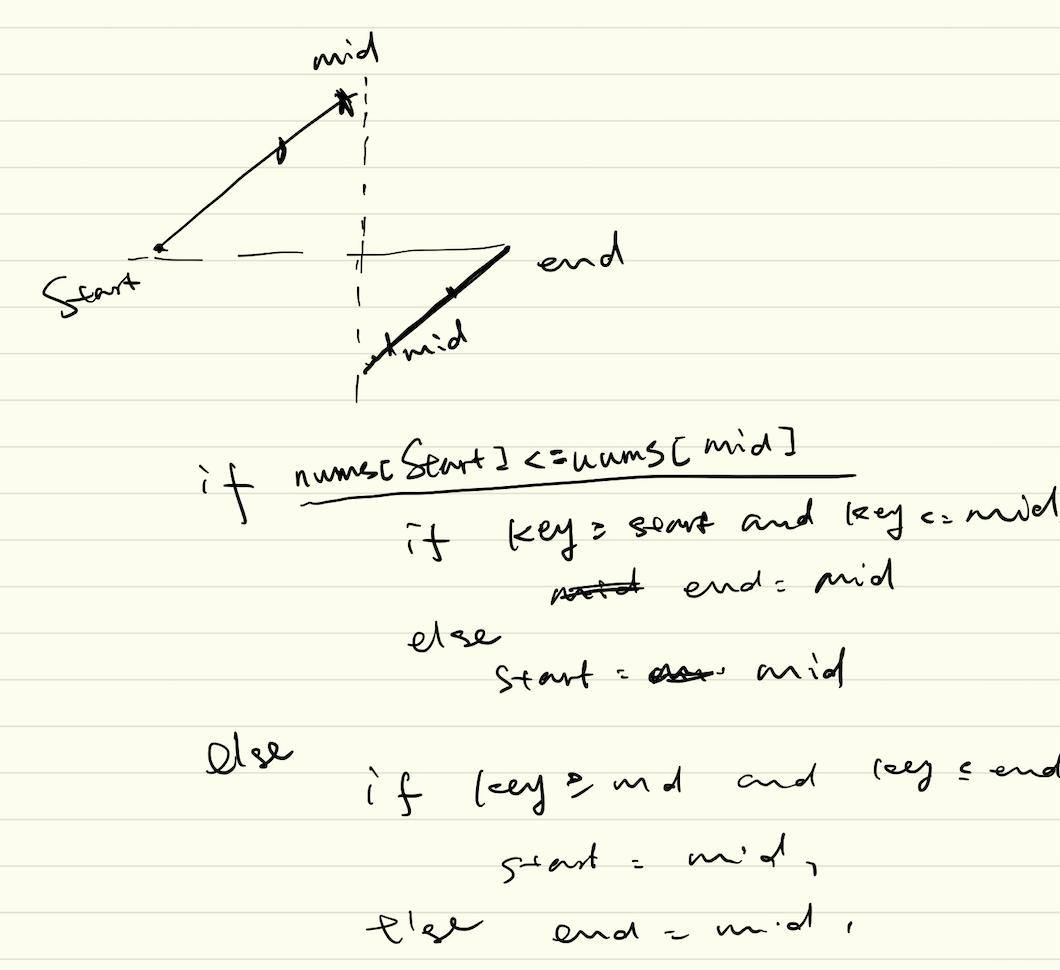 mid
Start
end
mid
if nums[Start] <= nums[mid]
if key ≥ start and key <= mid
end = mid
else
start = mid
else
if key ≥ md and key ≤ end
start = mid,
else end = mid,